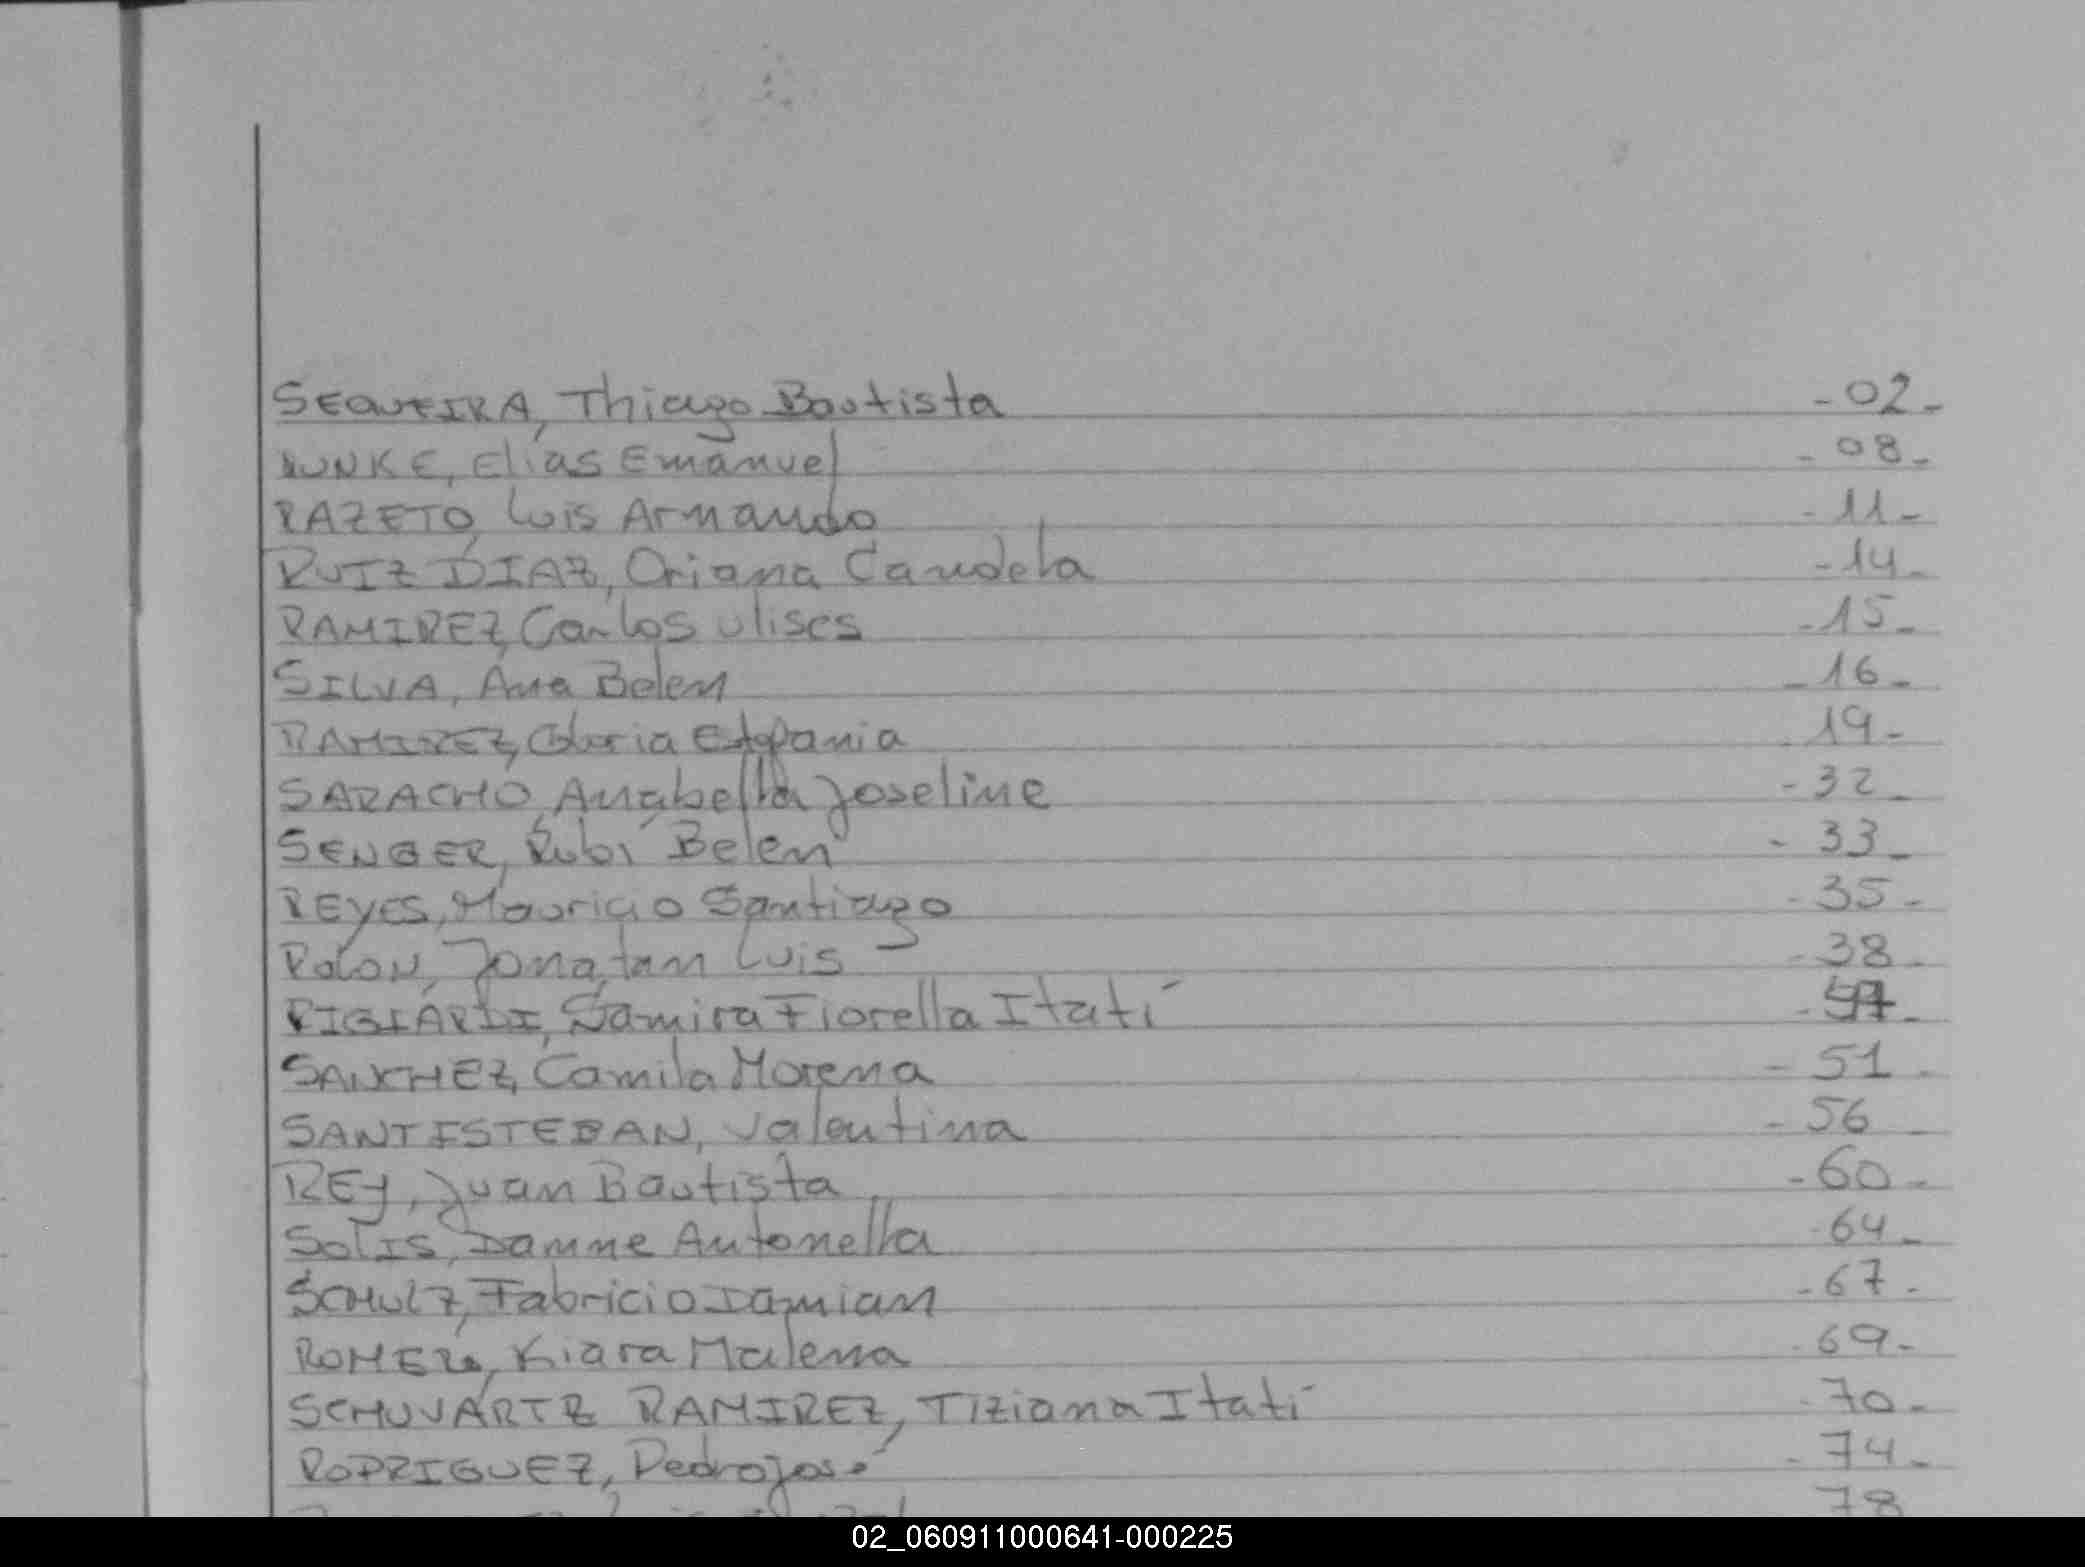 SEQUEIRA, Thiago Bautista -02-
RUNKE, Elias Emanuel -08-
RAZETO, Luis Armando -11-
RUIZ DIAZ, Oriana Candela -14-
RAMIREZ, Carlos Ulises -15-
SILVA, Ana Belen -16-
RAMIREZ, Gloria Estefania 19-
SARACHO, Anabella Joseline -32-
SENGER, Rubí Belen -33-
REYES, Mauricio Santiago -35-
ROLON, Jonatan Luis -38-
Samira Fiorella Itatí
SANCHEZ, Camila Morena -51-
SANTISTEBAN, Valentina -56-
REY, Juan Bautista -60-
SOLIS, Danne Antonella 64-
SCHULZ, Fabricio Damian -67-
ROMERO, Kiara Malena 69-
SCHUVARTZ RAMIREZ, Tiziana Itatí -70-
RODRIGUEZ, Pedro José -74-
78
02_060911000641-000225